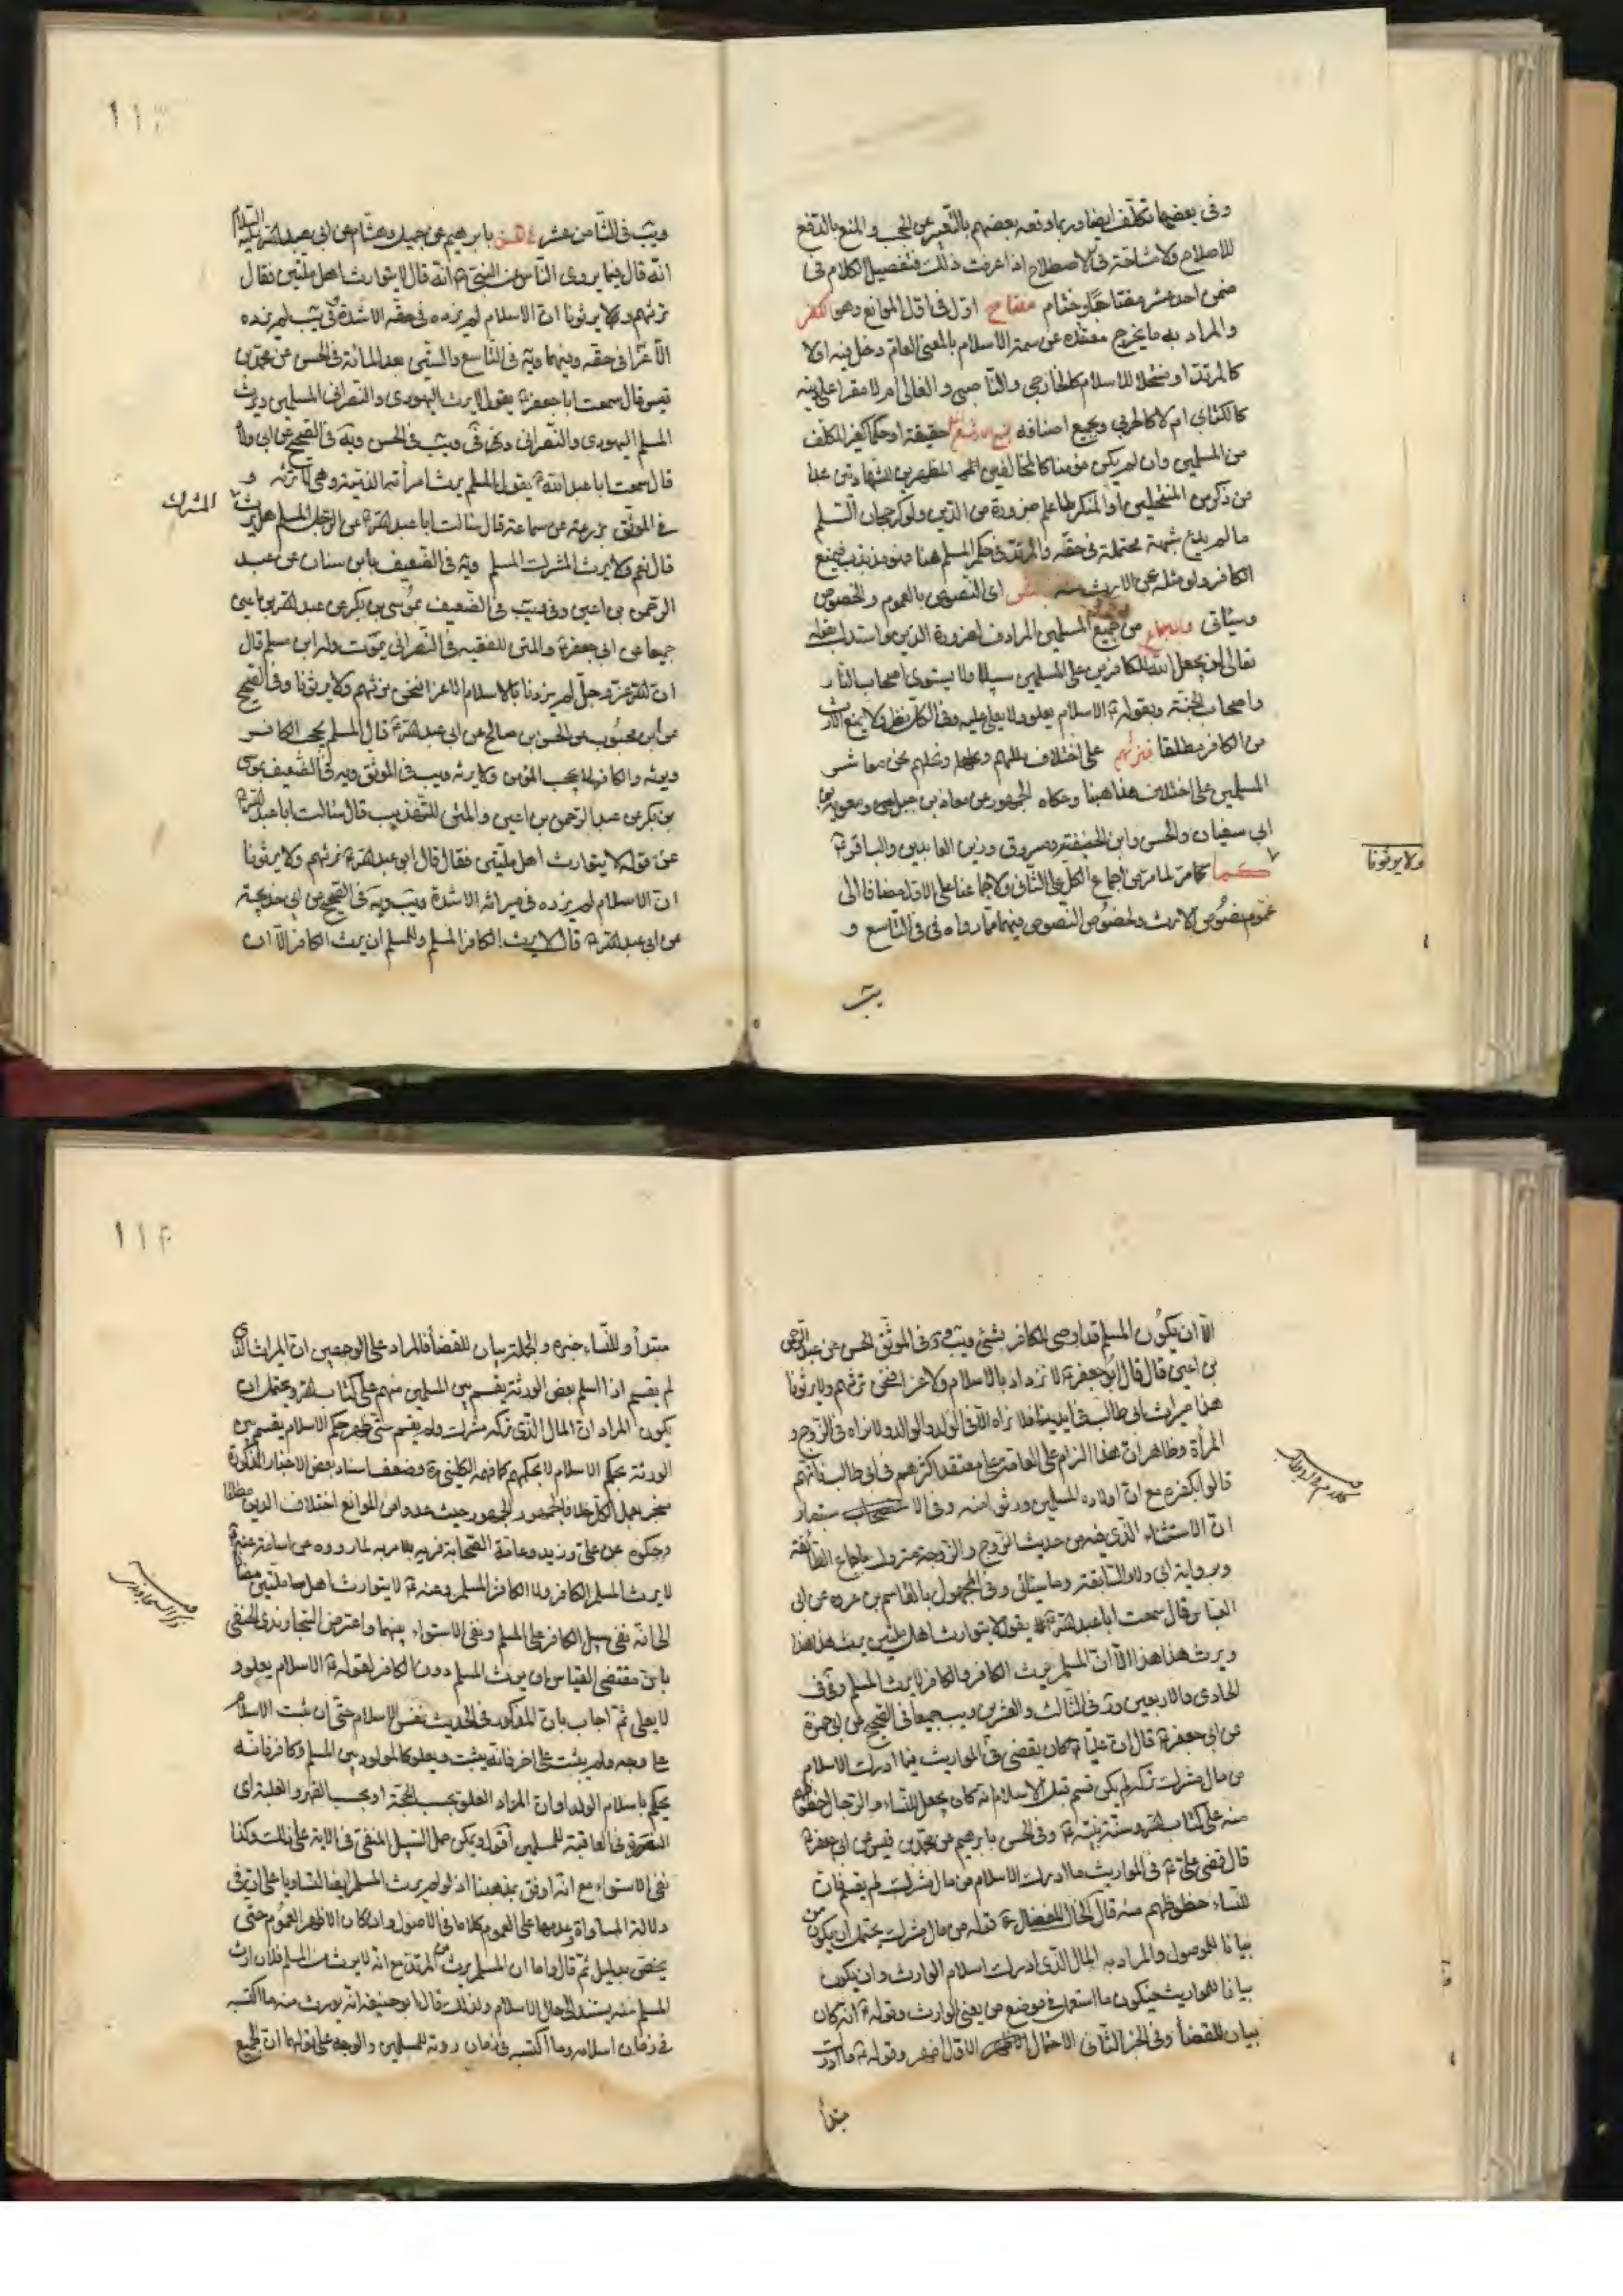 وفى بعضها تكلّف ايضا وربما وقعه بعضهم بالتعبير عن الحجب والمنع بالدفع
للاصلاح ولا مشاحّة فى الاصطلاح اذا عرفت ذلك فتفصيل الكلام فى
ضمن احد عشر مفتاحا وختام مفتاح اوّل فى اوّل الموانع وهو الكفر
والمراد به ما يخرج معتقده عن سمة الاسلام بالمعنى العامّ دخل فيه اولا
كالمرتدّ او منتحلا للاسلام كالخارجى والناصبى والغالى ام لا مقرا على دينه
كالكتابى ام لا كالحربى وبجميع اصنافه حقيقة او حكما كغير المكلّف
من المسلمين وان لم يكن مؤمنا كالمخالفين المظهرين للشهادتين عدا
من ذكر من المنتحلين او المنكر لما علم ضرورة من الدّين ولو كرجحان التسلم
ما لم يدع شبهة محتملة فى حقّه والمرتدّ فى حكم المسلم هنا فيمنع
الكافر ولو مثله عن الارث منه بالنص اى النصوص بالعموم والخصوص
وسيأتى والاجماع من جميع المسلمين المرادف لضرورة الدين واستدل بقوله
تعالى لن يجعل الله للكافرين على المسلمين سبيلا ولا يستوى اصحاب النار
واصحاب الجنّة وبقوله الاسلام يعلو ولا يعلى عليه وفى الكل نظر ولا يمنع الارث
من الكافر مطلقا فنرثهم على اختلاف مللهم ونحلهم نحن معاشر
المسلمين على اختلاف مذاهبنا وحكاه الجمهور عن معاذ بن جبل ومعوية بن
ابى سفيان والحسن وابن الحنفية ومسروق وزين العابدين والباقر
ولا يرثونا
كما مرّ لما مرّ من اجماع الكل على الثانى ولاجماعنا على الاوّل مضافا الى
عموم نصوص الارث ولخصوص النصوص فيهما فما رواه فى فى التاسع و
يب
١١٣
ويب فى الثامن عشر بابرهيم عن جميل وهشام عن ابى عبد الله عليه السلام
انّه قال فيما يروى الناس عن النبى انّه قال لا يتوارث اهل ملتين فقال
نرثهم ولا يرثونا انّ الاسلام لم يزده فى حقّه الا شدة وفى يب لم يزده
الّا عزّا فى حقه وفيهما ويه فى التاسع والستين بعد المائة فى الحسن عن محمّد بن
قيس قال سمعت ابا جعفر يقول لا يرث اليهودى والنصرانى المسلمين ويرث
المسلم اليهودى والنصرانى وفى فى ويب فى الحسن ويه فى الصحيح عن ابى ولاد
قال سمعت ابا عبد الله يقول المسلم يرث امرأته الذميّة وهى لا ترثه و
فى الموثّق بزرعة عن سماعة قال سئالت ابا عبد الله عن الرّجل المسلم هل يرث المشرك
قال نعم ولا يرث المشرك المسلم ويه فى الضعيف بابن سنان عن عبد
الرحمن بن اعين وفى ويب فى الضعيف بموسى بن بكر عن عبد الله بن اعين
جميعا عن ابى جعفر والمتن للفقيه فى النصرانى يموت وله ابن مسلم قال
ان الله عز وجلّ لم يزدنا بالاسلام الا عزا فنحن نرثهم ولا يرثونا وفى الصحيح
عن ابن محبوب عن الحسن بن صالح عن ابى عبد الله قال المسلم يحجب الكافر
ويرثه والكافر لا يحجب المؤمن ولا يرثه ويب فى الموثّق ويه فى الضعيف بموسى
بن بكر عن عبد الرحمن بن اعين والمتن للتهذيب قال سئالت ابا عبد الله
عن قوله لا يتوارث اهل ملّتين فقال قال ابو عبد الله نرثهم ولا يرثونا
انّ الاسلام لم يزده فى ميراثه الا شدة ويب ويه فى الصحيح عن ابى خديجة
عن ابى عبد الله قال لا يرث الكافر المسلم وللمسلم ان يرث الكافر الّا ان
الّا ان يكون المسلم قد اوصى للكافر بشئ ويب وفى الموثّق الحسن عن عبد الرحمن
بن اعين قال قال ابو جعفر لا نزداد بالاسلام الا عزا فنحن نرثهم ولا يرثونا
هذا ميراث ابى طالب فى ايدينا فلا نراه الّا فى الولد والوالد ولا نراه فى الزّوج و
المرأة وظاهر ان هذا الزام على العامّة على معتقد اكثرهم فى ابى طالب فانّهم
قالوا بكفره مع انّ اولاده المسلمين ورثوا منه وفى الا
انّ الاستثناء الّذى فيه من حديث الزّوج والزّوجة متروك باجماع الطائفة
وبرواية ابى ولاد السابقة وما سيأتى وفى المجهول بالقاسم بن عروة عن ابى
العبّاس قال سمعت ابا عبد الله يقول لا يتوارث اهل ملّتين يرث هذا هذا
ويرث هذا هذا الا ان المسلم يرث الكافر والكافر لا يرث المسلم وفى فى
الحادى والاربعين ويه فى الثالث والعشرين ويب جميعا فى الصحيح عن ابى حمزة
عن ابى جعفر قال ان عليّا كان يقضى فى المواريث فيما ادرك الاسلام
من مال مشرك تركه لم يكن قسم قبل الاسلام انّه كان يجعل للنّساء والرّجال حظوظهم
منه على كتاب الله وسنّة نبيّه وفى الحسن بابرهيم عن محمّد بن قيس عن ابى جعفر
قال قضى على فى المواريث ما ادرك الاسلام من مال مشرك لم يقسم فان
للنساء حظوظهم منه قال الخال المفضال قوله من مال مشرك يحتمل ان يكون من
بيانا للموصول والمراد به المال الّذى ادرك اسلام الوارث وان يكون
بيانا للمواريث فيكون ما استعمل فى موضع من يعنى الوارث وقوله انّه كان
بيان للقضأ وفى الخبر الثانى الاحتمال الاوّل اظهر وقوله ما ادرك
مبتدأ
١١٤
مبتدأ وللنّساء خبره والجملة بيان للقضأ فالمراد على الوجهين انّ الميراث الذى
لم يقسم اذا اسلم بعض الورثة يقسم بين المسلمين منهم على كتاب الله ويحتمل ان
يكون المراد انّ المال الّذى تركه مشرك ولم يقسم حتّى ظهر حكم الاسلام يقسم بين
الورثة بحكم الاسلام لا بحكمهم كما فهمه الكلينى وضعف اسناد بعض الاخبار المذكورة
منجبر بعمل الكلّ خلافا لجمهور الجمهور حيث عدوا من الموانع اختلاف الدين مطلقا
وحكوه عن علىّ وزيد وعامّة الصحابة لما رووه عن اسامة عنه
لا يرث المسلم الكافر ولا الكافر المسلم وعنه لا يتوارث اهل ملّتين مضافا
الى انّه نفى سبيل الكافر على المسلم ونفى الاستواء بينهما واعترض السجاوندى الحنفى
بانّ مقتضى القياس ان يرث المسلم دون الكافر لقوله الاسلام يعلو و
لا يعلى ثمّ اجاب بانّ المذكور فى الحديث نفس الاسلام حتّى ان ثبت الاسلام
على وجه ولم يثبت على اخر فانّه يثبت ويعلو كالمولود بين المسلم وكافر فانّه
يحكم باسلام الولد او انّ المراد العلو بحسب الحجّة او بحسب القهر والغلبة اى
النصرة فى العاقبة للمسلمين اقول ويمكن حمل السّبيل المنفى فى الاية على ذلك وكذا
نفى الاستواء مع انّه اوفق بمذهبنا اذ لو لم يرث المسلم ايضا لتساويا على ان فى
دلالة المساواة وعدمها على العموم كلاما فى الاصول وان كان الاظهر العموم حتّى
يخصّ بدليل ثمّ قال واما ان المسلم يرث من المرتدّ مع انّه لا يرث من المسلم فلان ارث
المسلم منه يستند الى حال الاسلام ولذلك قال ابو حنيفة انّه يورث منه ما اكتسبه
فى زمان اسلامه وما اكتسبه فى زمان ردته للمسلمين والوجه على قولهما انّ الجميع